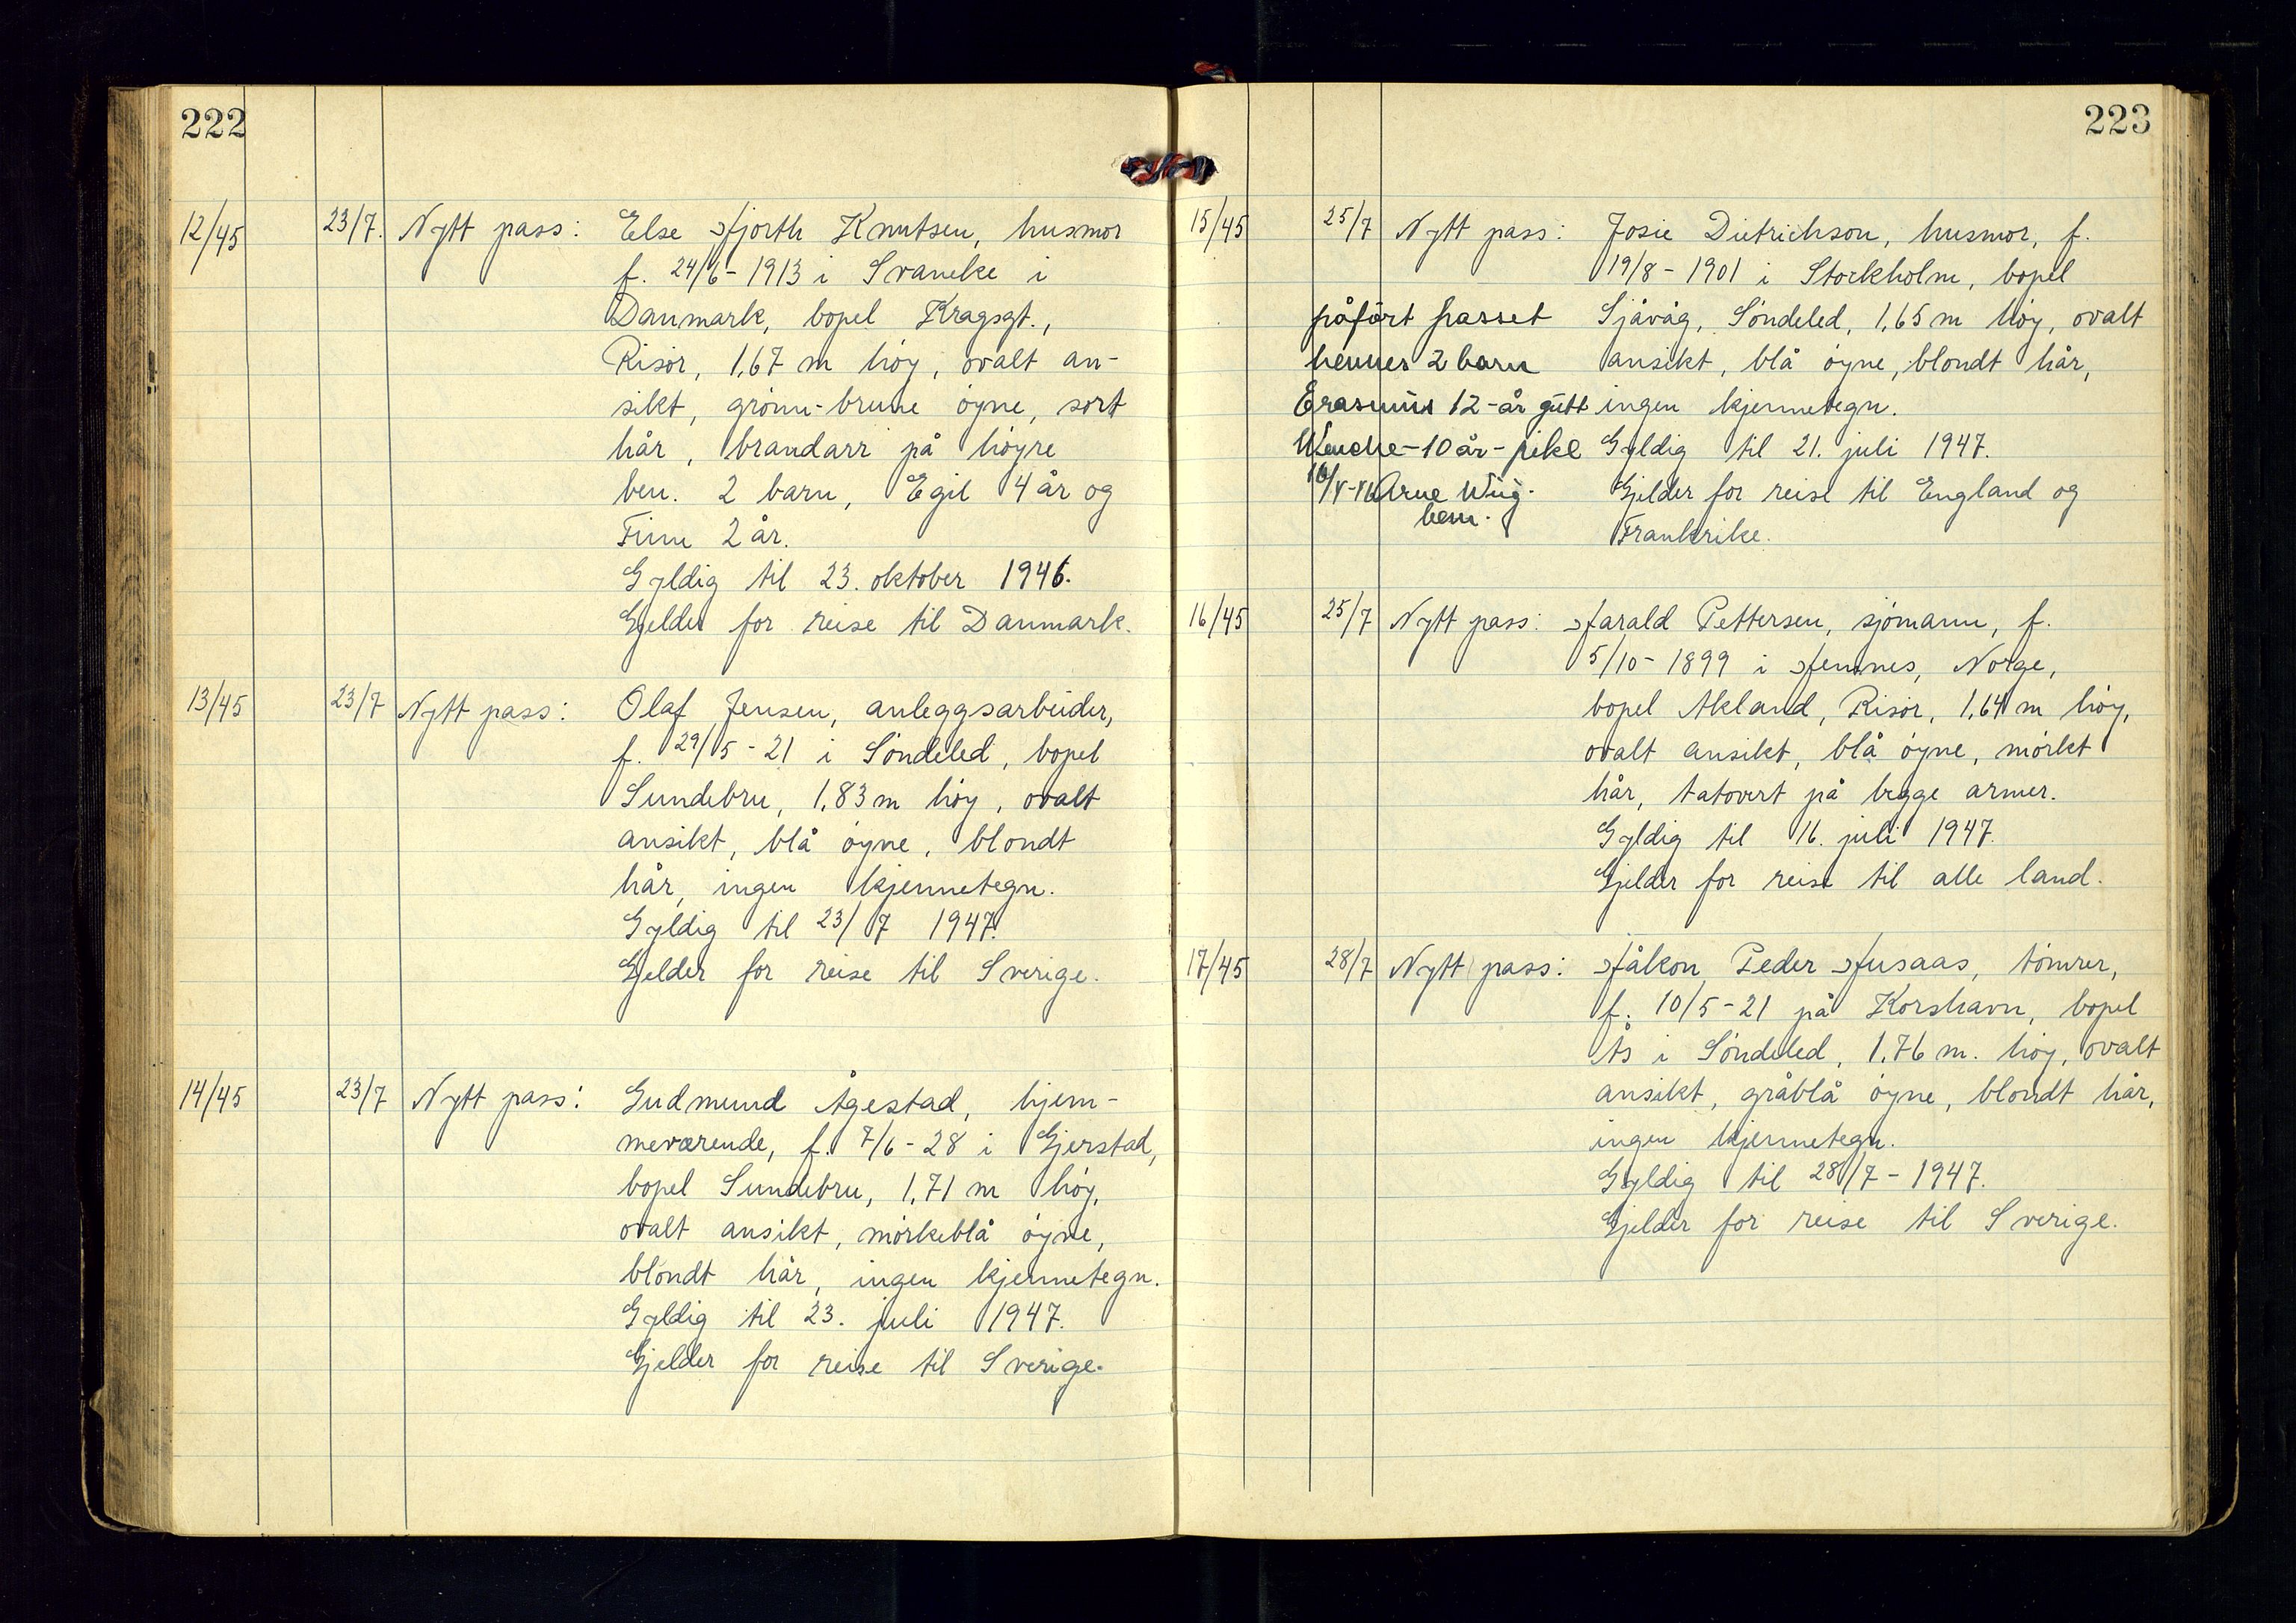 222
12/45 23/7. Nytt pass: Else Hjorth Knutsen, husmor
f. 24/6-1913 i Svaneke i
Danmark, bopel Kragsgt.,
Risör, 1,67 m höy, ovalt an-
sikt, grönn-brune öyne, sort
hår, brandarr på höyre
ben. 2 barn, Egil 4 år og
Finn 2 år.
Gyldig til 23. oktober 1946.
Gjelder for reise til Danmark.
13/45 23/7 Nytt pass: Olaf Jensen, anleggsarbeider,
f. 29/5-21 i Söndeled, bopel
Sundebru, 1,83 m höy, ovalt
ansikt, blå öyne, blondt
hår, ingen kjennetegn.
Gyldig til 23/7 1947.
Gjelder for reise til Sverige.
14/45 23/7 Nytt pass: Gudmund Ågestad, hjem-
meværende, f. 7/6-28 i Gjerstad,
bopel Sundebru, 1,71 m höy,
ovalt ansikt, mörkeblå öyne,
blondt hår, ingen kjennetegn.
Gyldig til 23. juli 1947.
Gjelder for reise til Sverige.
223
15/45 25/7 Nytt pass: Josie Dietrichson, husmor, f.
19/8-1901 i Stockholm, bopel
Sjåvåg, Söndeled, 1,65 m höy, ovalt
ansikt, blå öyne, blondt hår,
ingen kjennetegn.
Gyldig til 21. juli 1947.
Gjelder for reise til England og
Frankrike.
påfört passet
hennes 2 barn
Erasmus 12-år gutt
Wenche-10 år-pike
Arne Wiig.
16/45 25/7 Nytt pass: Harald Pettersen, sjömann, f.
5/10-1899 i Hemnes, Norge,
bopel Akland, Risör, 1,64 m höy,
ovalt ansikt, blå öyne, mörkt
hår, tatovert på begge armer.
Gyldig til 16. juli 1947.
Gjelder for reise til alle land.
17/45 28/7 Nytt pass: Håkon Peder Husaas, tömrer,
f. 10/5-21 på Korshavn, bopel
Ås i Söndeled, 1,76 m. höy, ovalt
ansikt, gråblå öyne, blondt hår,
ingen kjennetegn.
Gyldig til 28/7-1947.
Gjelder for reise til Sverige.